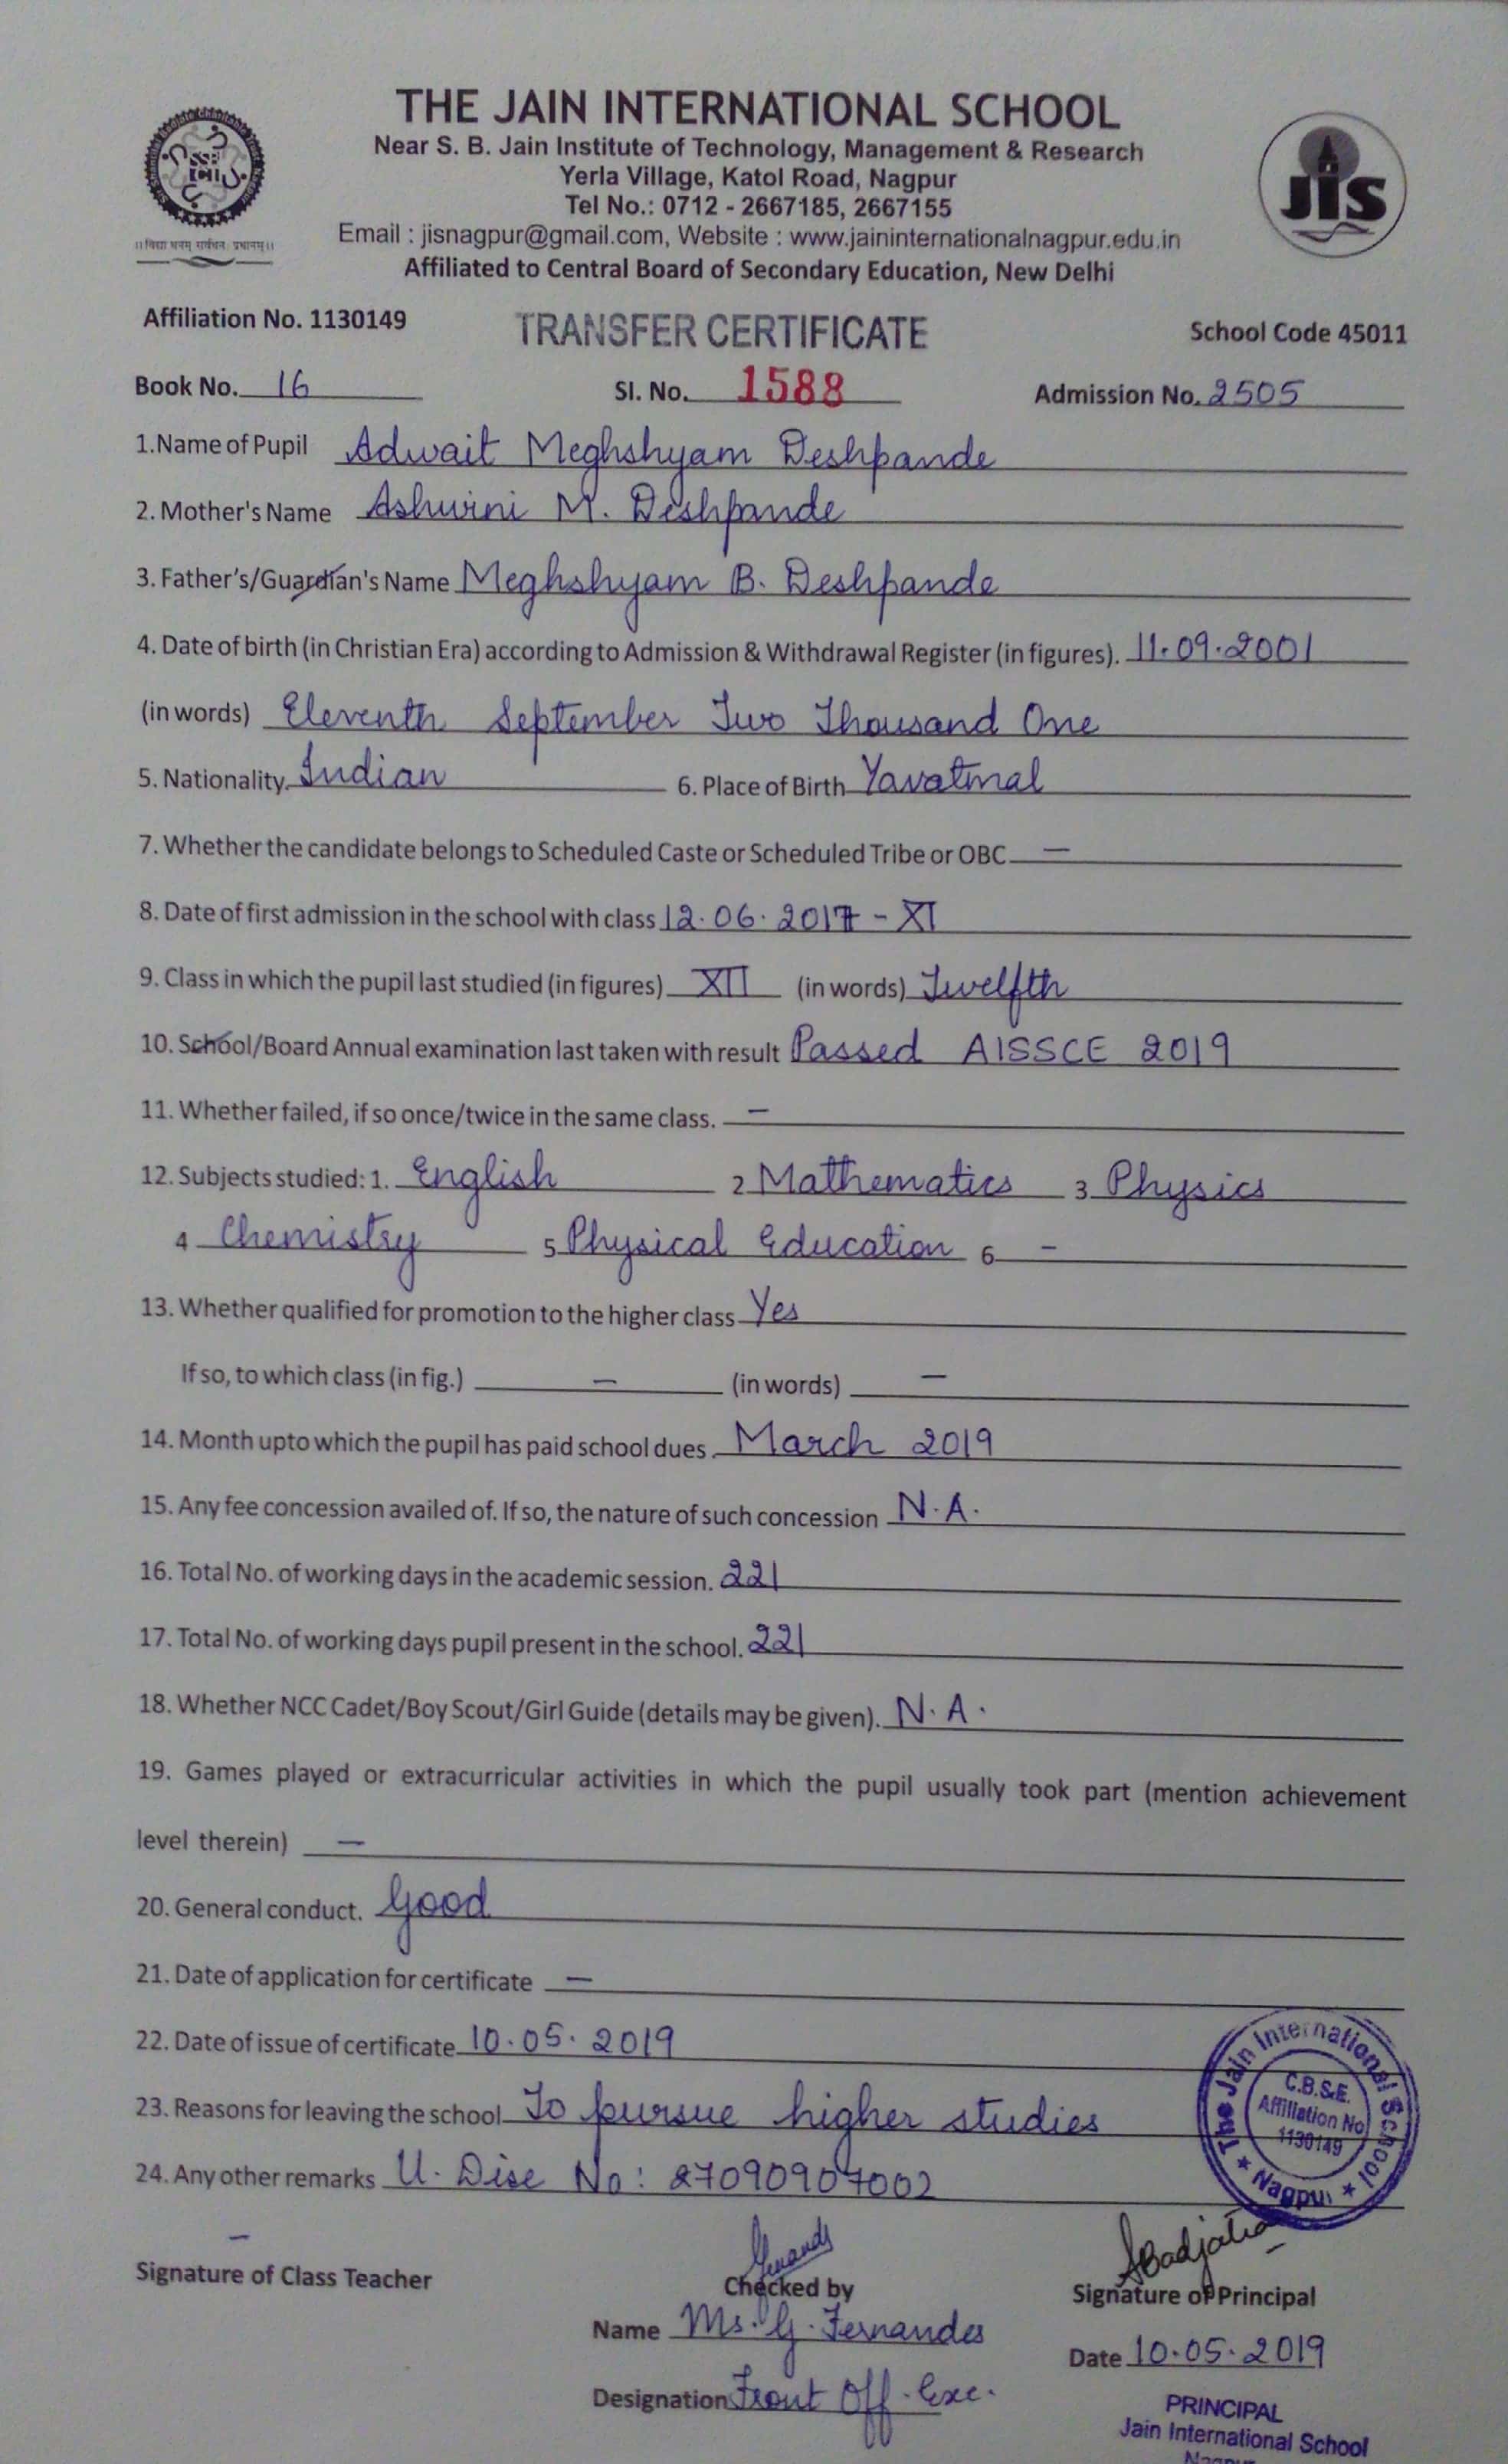 THE JAIN INTERNATIONAL SCHOOL
Near S. B. Jain Institute of Technology, Management & Research
Yerla Village, Katol Road, Nagpur
Tel No.: 0712 - 2667185, 2667155
Email : jisnagpur@gmail.com, Website : www.jaininternationalnagpur.edu.in
Affiliated to Central Board of Secondary Education, New Delhi
JIS
Affiliation No. 1130149 TRANSFER CERTIFICATE School Code 45011
Book No. 16 Sl. No. 1588 Admission No. 2505
1.Name of Pupil Adwait Meghshyam Deshpande
2. Mother's Name Ashwini M. Deshpande
3. Father's/Guardian's Name Meghshyam B. Deshpande
4. Date of birth (in Christian Era) according to Admission & Withdrawal Register (in figures). 11.09.2001
(in words) Eleventh September Two Thousand One
5. Nationality. Indian 6. Place of Birth Yavatmal
7. Whether the candidate belongs to Scheduled Caste or Scheduled Tribe or OBC —
8. Date of first admission in the school with class 12.06.2017 - XI
9. Class in which the pupil last studied (in figures) XII (in words) Twelfth
10. School/Board Annual examination last taken with result Passed AISSCE 2019
11. Whether failed, if so once/twice in the same class. —
12. Subjects studied: 1. English 2 Mathematics 3 Physics
4 Chemistry 5 Physical Education 6 -
13. Whether qualified for promotion to the higher class Yes
If so, to which class (in fig.) — (in words) —
14. Month upto which the pupil has paid school dues. March 2019
15. Any fee concession availed of. If so, the nature of such concession N.A.
16. Total No. of working days in the academic session. 221
17. Total No. of working days pupil present in the school. 221
18. Whether NCC Cadet/Boy Scout/Girl Guide (details may be given). N.A.
19. Games played or extracurricular activities in which the pupil usually took part (mention achievement
level therein) —
20. General conduct. Good
21. Date of application for certificate —
22. Date of issue of certificate 10.05.2019
23. Reasons for leaving the school To pursue higher studies
24. Any other remarks U. Dise No: 27090907002
The Jain International School
C.B.S.E.
Affiliation No
1130149
★ Nagpur ★
—
Signature of Class Teacher Checked by Signature of Principal
Name Ms. G. Fernandes
Date 10.05.2019
Designation Front Off. Exe.
PRINCIPAL
Jain International School